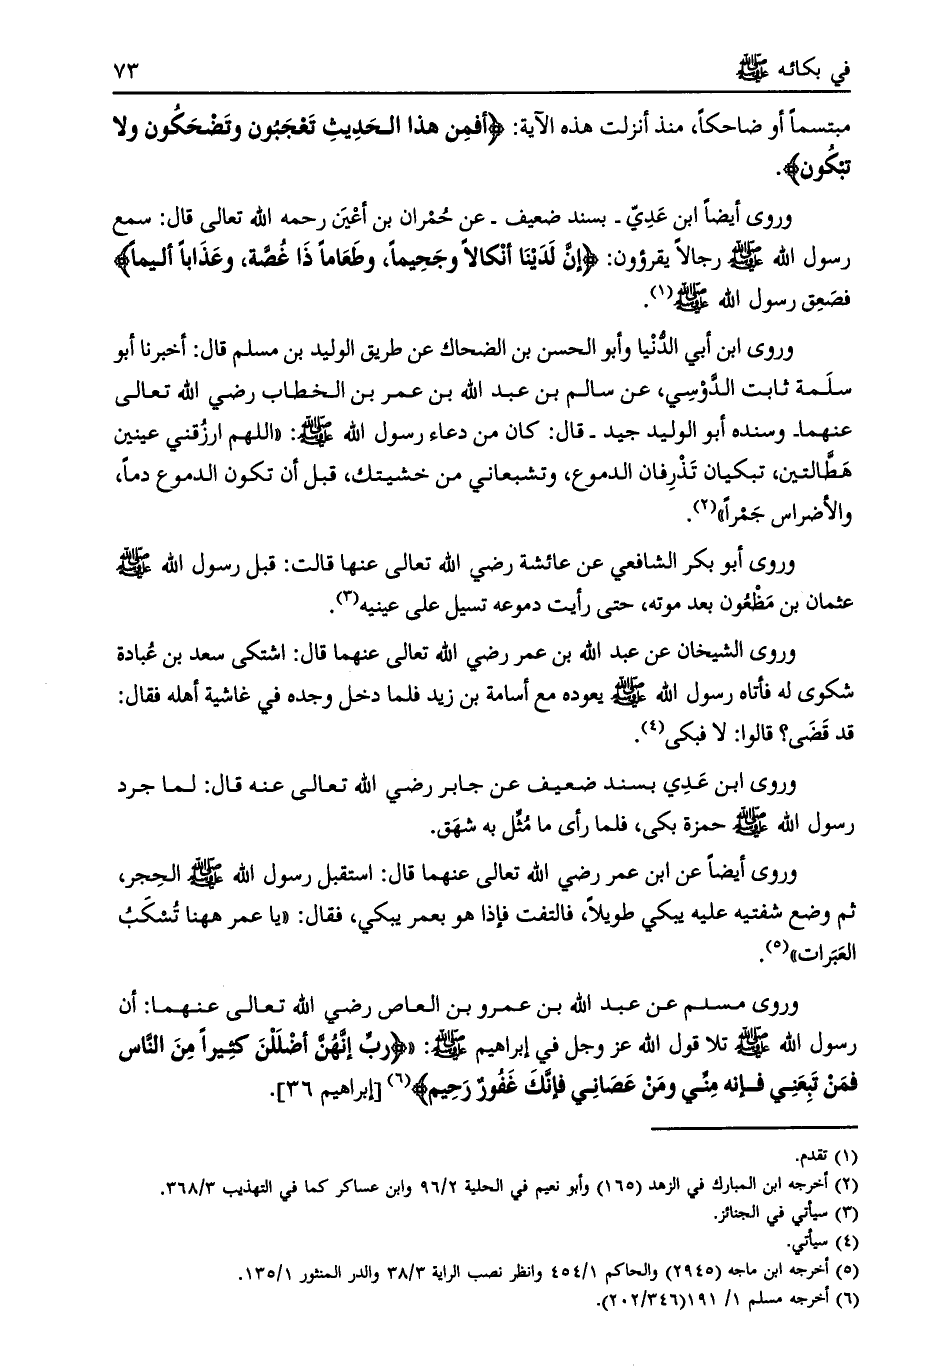 في بكائه ﷺ ٧٣
مبتسماً أو ضاحكاً، منذ أنزلت هذه الآية: ﴿أفمِن هذا الـحَدِيثِ تَعْجَبُون وتَضْحَكُون ولا
تبْكُون﴾.
وروى أيضاً ابن عَدِيّ ـ بسند ضعيف ـ عن حُمْران بن أعْيَن رحمه الله تعالى قال: سمع
رسول الله ﷺ رجالاً يقرؤون: ﴿إنَّ لَدَيْنَا أنْكالاً وجَحِيماً، وطَعَاماً ذَا غُصَّة، وعَذَاباً أليماً﴾
فصَعِق رسول الله ﷺ(١).
وروى ابن أبي الدُّنْيا وأبو الحسن بن الضحاك عن طريق الوليد بن مسلم قال: أخبرنا أبو
سلَمة ثابت الدَّوْسِي، عن سالم بن عبد الله بن عمر بن الخطاب رضي الله تعالى
عنهما۔ وسنده أبو الوليد جيد ـ قال: كان من دعاء رسول الله ﷺ: «اللهم ارزُقني عينين
هَطَّالتين، تبكيان تَذْرِفان الدموع، وتشبعاني من خشيتك، قبل أن تكون الدموع دماً،
والأضراس جَمْراً»(٢).
وروى أبو بكر الشافعي عن عائشة رضي الله تعالى عنها قالت: قبل رسول الله ﷺ
عثمان بن مَظْعُون بعد موته، حتى رأيت دموعه تسيل على عينيه(٣).
وروى الشيخان عن عبد الله بن عمر رضي الله تعالى عنهما قال: اشتكى سعد بن عُبادة
شكوى له فأتاه رسول الله ﷺ يعوده مع أسامة بن زيد فلما دخل وجده في غاشية أهله فقال:
قد قَضَى؟ قالوا: لا فبكى(٤).
وروى ابن عَدِي بسند ضعيف عن جابر رضي الله تعالى عنه قال: لما جرد
رسول الله ﷺ حمزة بكى، فلما رأى ما مُثِّل به شهَق.
وروى أيضاً عن ابن عمر رضي الله تعالى عنهما قال: استقبل رسول الله ﷺ الحِجر،
ثم وضع شفتيه عليه يبكي طويلاً، فالتفت فإذا هو بعمر يبكي، فقال: «يا عمر ههنا تُسْكَبُ
العَبَرات»(٥).
وروى مسلم عن عبد الله بن عمرو بن العاص رضي الله تعالى عنهما: أن
رسول الله ﷺ تلا قول الله عز وجل في إبراهيم ﷺ: «﴿ربِّ إنَّهُنَّ أضْلَلْنَ كثِيراً مِنَ النَّاس
فمَنْ تَبِعَنِي فإنه مِنِّي ومَنْ عَصَانِي فإنَّكَ غَفُورٌ رَحِيم﴾(٦) [إبراهيم ٣٦].
(١) تقدم.
(٢) أخرجه ابن المبارك في الزهد (١٦٥) وأبو نعيم في الحلية ٩٦/٢ وابن عساكر كما في التهذيب ٣٦٨/٣.
(٣) سيأتي في الجنائز.
(٤) سيأتي.
(٥) أخرجه ابن ماجه (٢٩٤٥) والحاكم ٤٥٤/١ وانظر نصب الراية ٣٨/٣ والدر المنثور ١٣٥/١.
(٦) أخرجه مسلم ١/ ١٩١(٢٠٢/٣٤٦).